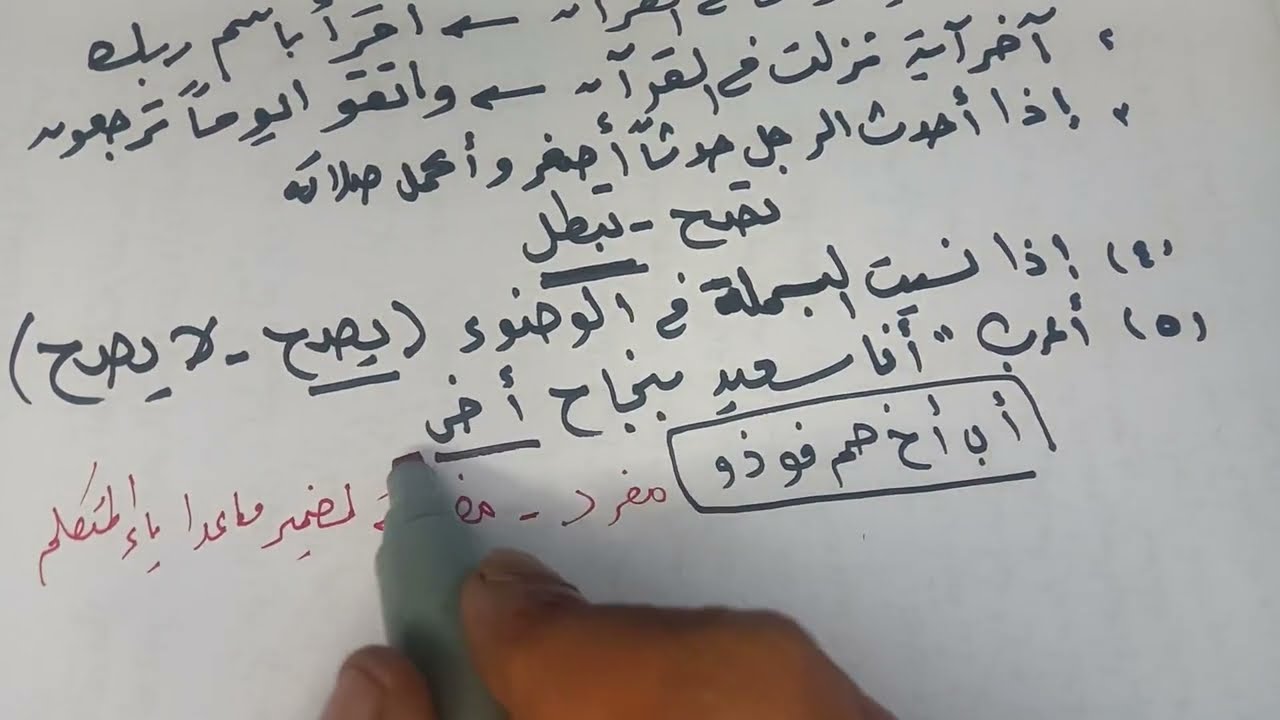 القرآن ← اقرأ باسم ربك
٢ آخر آية نزلت في القرآن ← واتقو اليوماً ترجعون
٣ إذا أحدث الرجل حدثاً أصغر وأكمل صلاته
تصح - تبطل
(٤) إذا نسيت البسملة في الوضوء (يصح - لا يصح)
(٥) أعرب "أنا سعيد بنجاح أخي
أب أخ حم فو ذو
مفرد - لضمير ماعدا ياء المتكلم